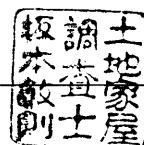 土地家屋
調査士
坂本敏則